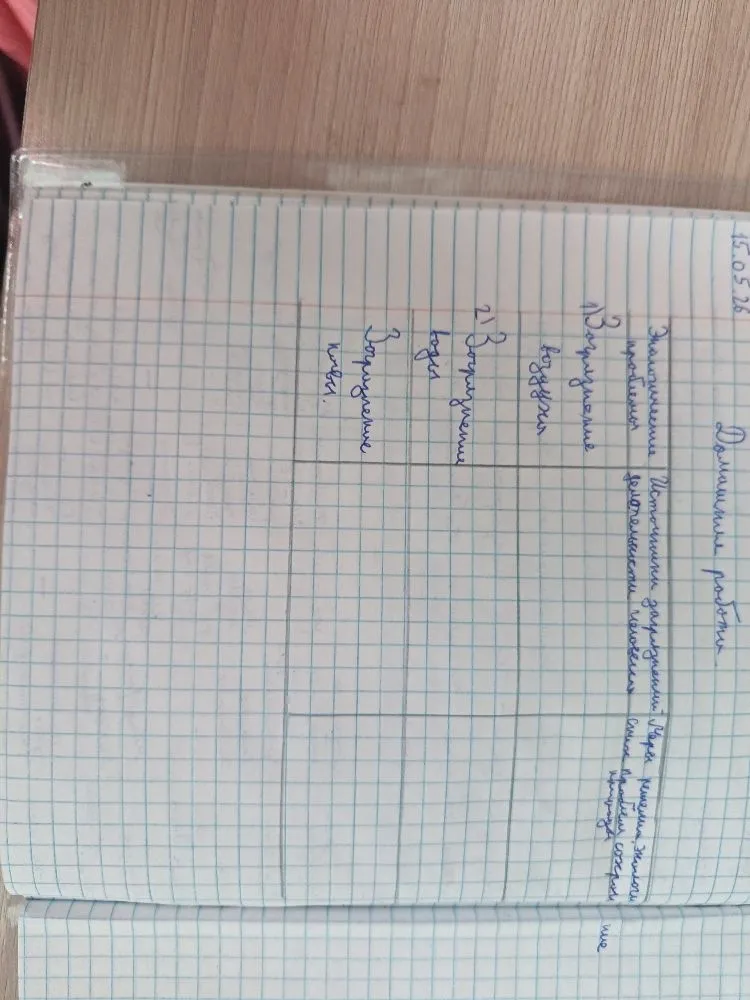 15.05.26
Домашняя работа.
Экологические проблемы
Источники загрязнений деятельности человека
Меры решения экологи
ских проблем сохране
ние
природы
1) Загрязнение
воздуха
2) Загрязнение
воды
Загрязнение
почвы.